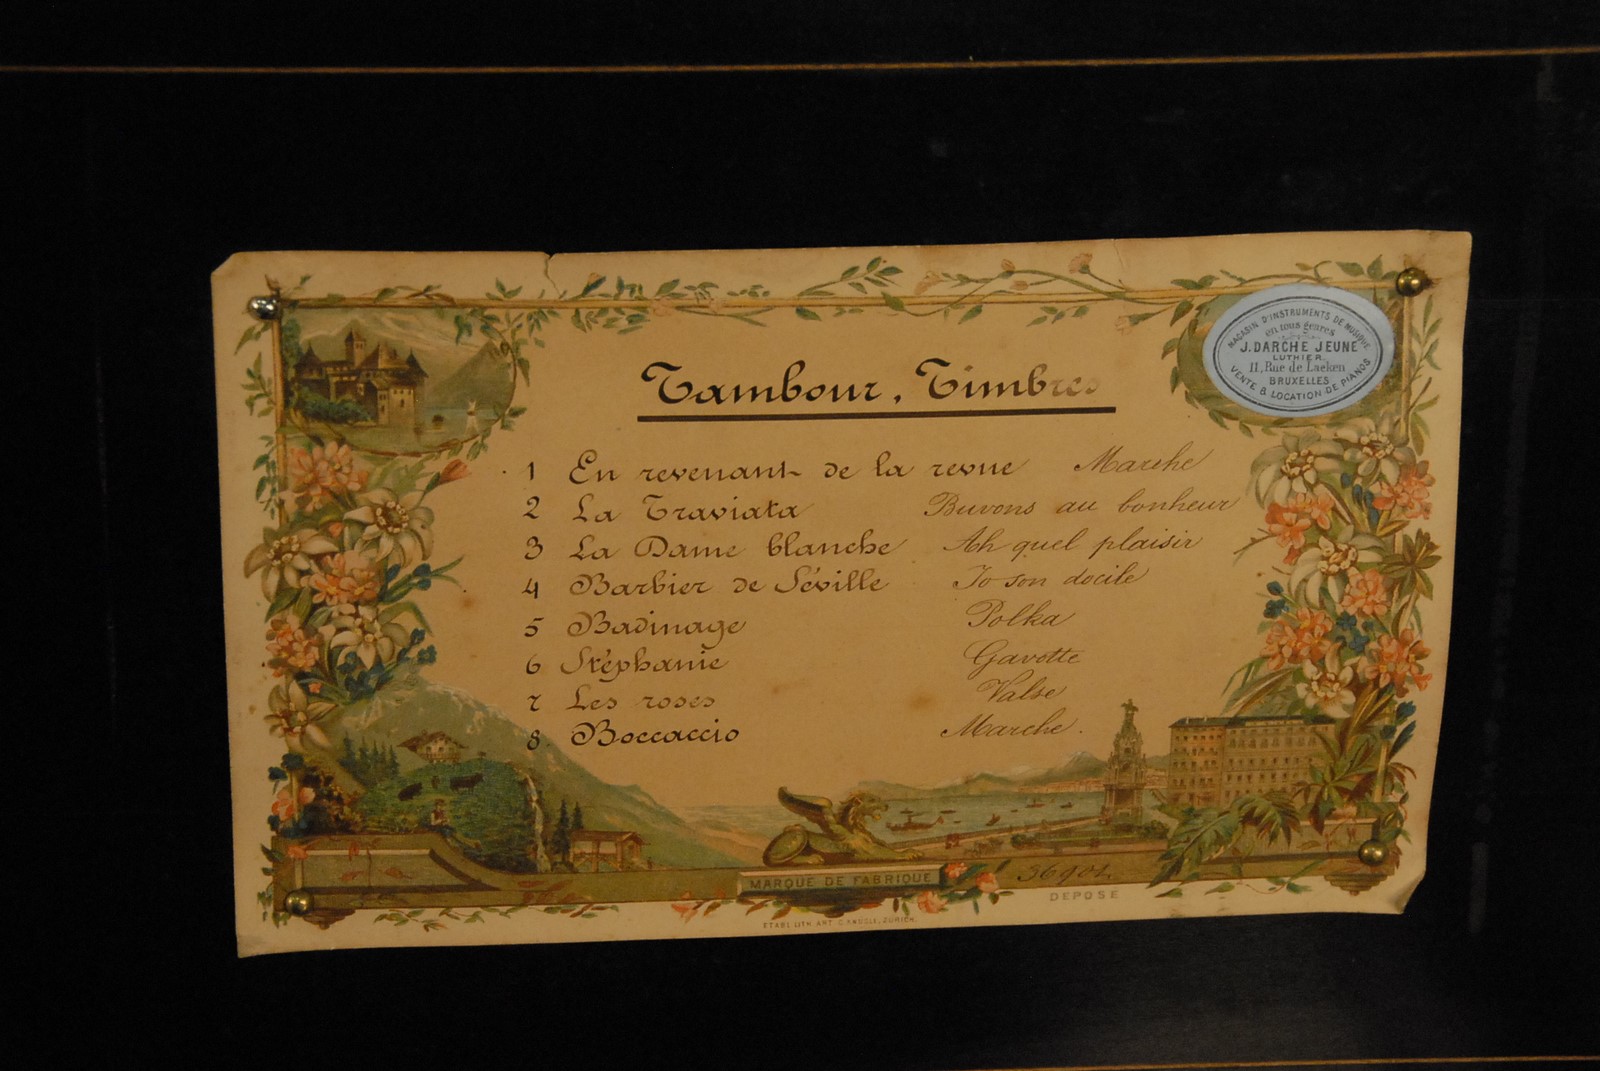 MAGASIN D'INSTRUMENTS DE MUSIQUE
en tous genres
J. DARCHE JEUNE
LUTHIER
11, Rue de Laeken
BRUXELLES
VENTE & LOCATION DE PIANOS
Tambour, Timbres
1 En revenant de la revue Marche
2 La Traviata Buvons au bonheur
3 La Dame blanche Ah quel plaisir
4 Barbier de Séville Io son docile
5 Badinage Polka
6 Stéphanie Gavotte
7 Les roses Valse
8. Boccaccio Marche.
MARQUE DE FABRIQUE
DEPOSE
ETABL. LITH. ART. ZÜRICH.